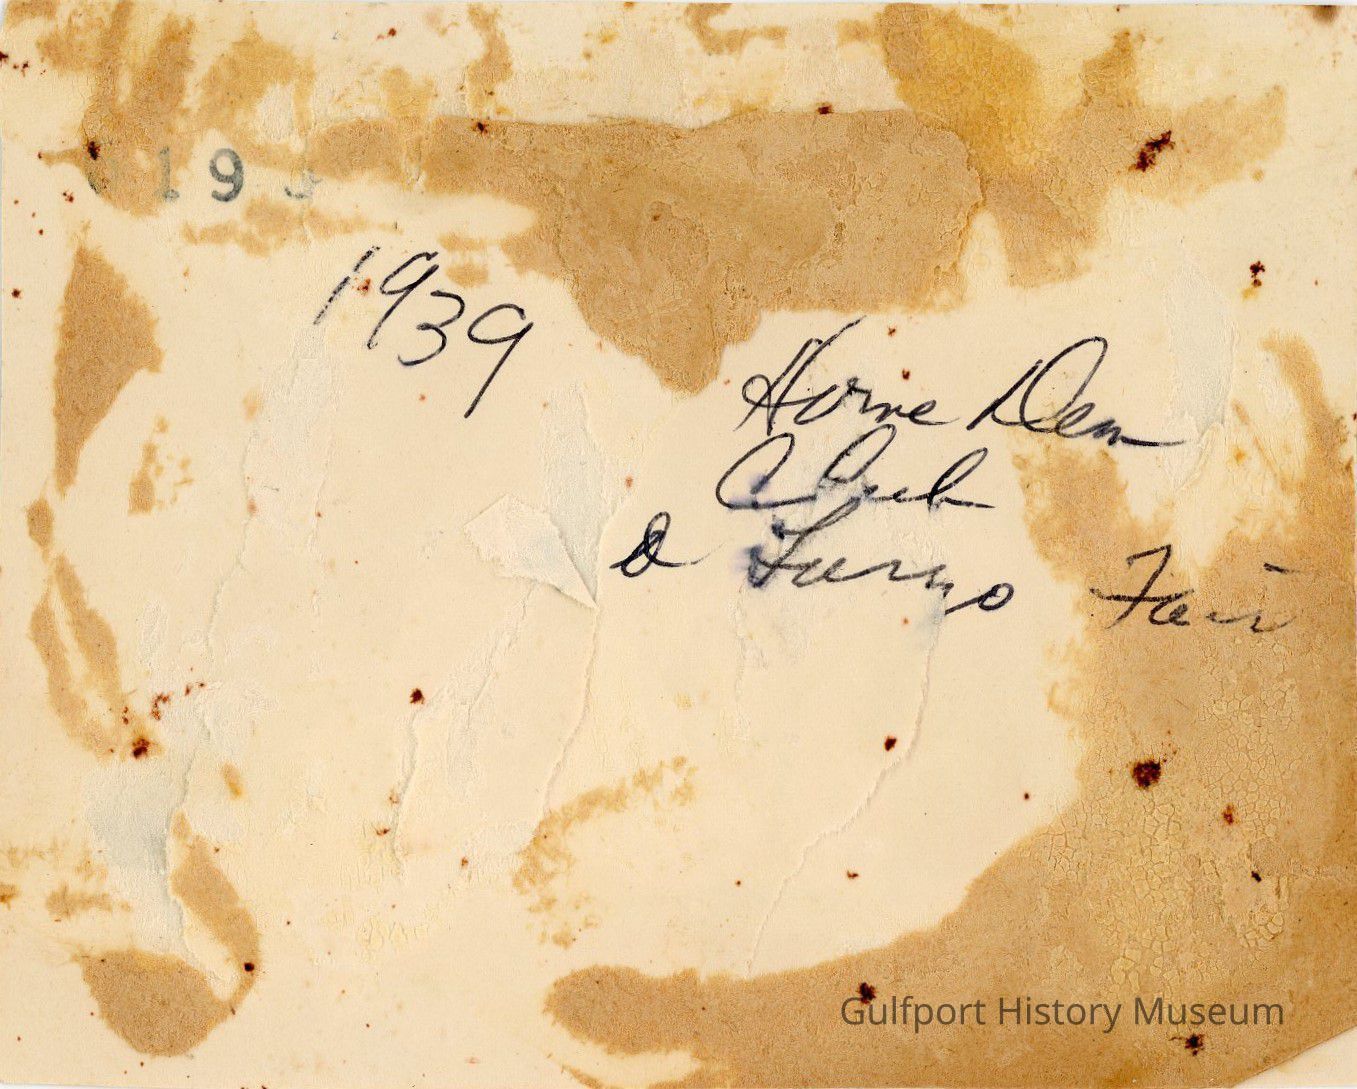 19
1939
Home Dem
Club
Fair
Gulfport History Museum